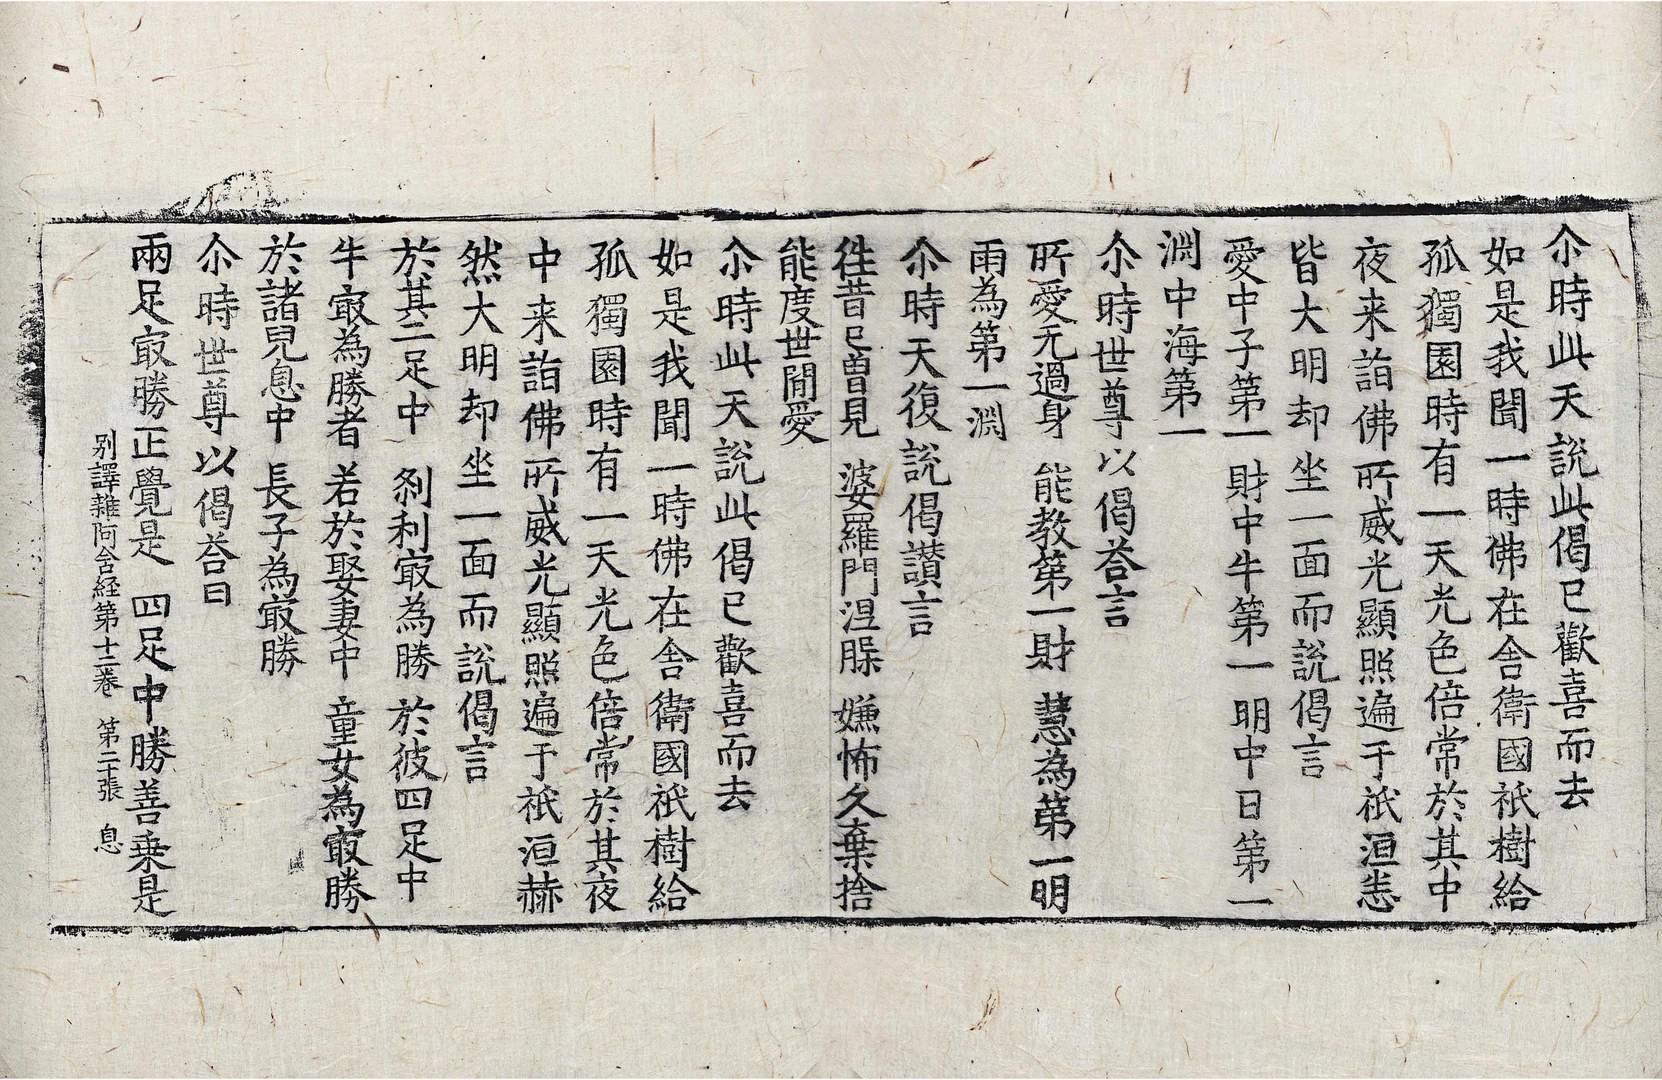 尒時此天說此偈已歡喜而去
如是我聞一時佛在舍衛國祇樹給
孤獨園時有一天光色倍常於其中
夜来詣佛所威光顯照遍于祇洹悉
皆大明却坐一面而說偈言
愛中子第一　財中牛第一　明中日第一
淵中海第一
尒時世尊以偈荅言
所愛无過身　能教第一財　慧為第一明
雨為第一淵
尒時天復說偈讃言
徃昔已曾見　婆羅門涅膜　嫌怖久棄捨
能度世間愛
尒時此天說此偈已歡喜而去
如是我聞一時佛在舍衛國祇樹給
孤獨園時有一天光色倍常於其夜
中来詣佛所威光顯照遍于祇洹赫
然大明却坐一面而說偈言
於其二足中　刹利㝡為勝　於彼四足中
牛㝡為勝者　若於娶妻中　童女為㝡勝
於諸兒息中　長子為㝡勝
尒時世尊以偈荅曰
兩足㝡勝正覺是　四足中勝善乗是
别譯雜阿含経第十二卷　第二十張　息